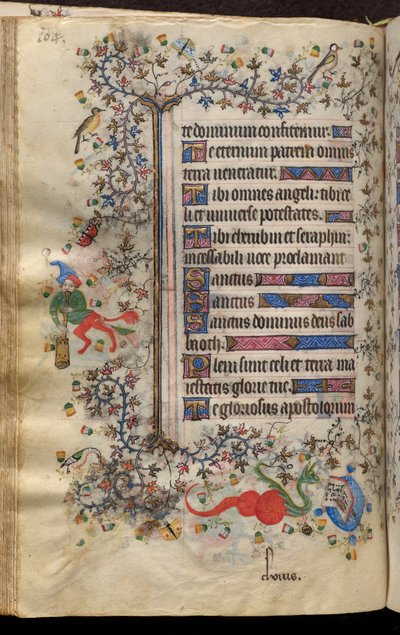 te dominum confitemur.
Te eternum patrem omnis
terra veneratur.
Tibi omnes angeli: tibi ce
li et universe potestates.
Tibi cherubin et seraphin:
incessabili voce proclamant
Sanctus
Sanctus
Sanctus dominus deus sab
baoth.
Pleni sunt celi et terra ma
iestatis glorie tue.
Te gloriosus apostolorum
chorus.